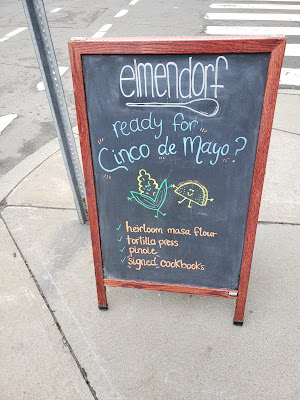 elmendorf
ready for
Cinco de Mayo?
✓ heirloom masa flour
✓ tortilla press
✓ pinole
✓ signed cookbooks